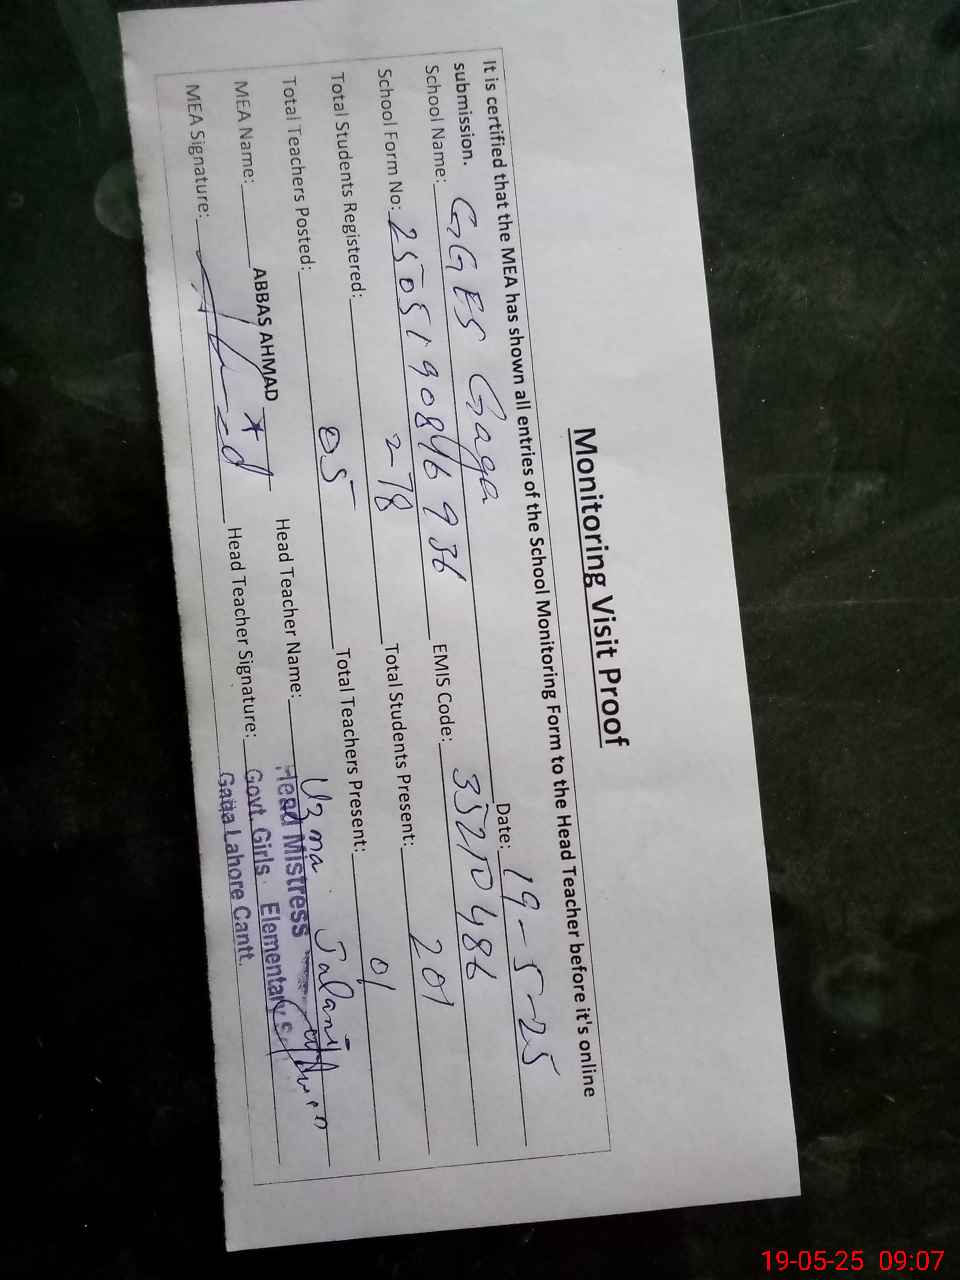 Monitoring Visit Proof
It is certified that the MEA has shown all entries of the School Monitoring Form to the Head Teacher before it's online
submission. Date: 19-5-25
School Name: GGES Gaga
School Form No: 2505190846936 EMIS Code: 35210486
Total Students Registered: 278 Total Students Present: 201
Total Teachers Posted: 05 Total Teachers Present: 01
MEA Name: ABBAS AHMAD Head Teacher Name: Uzma Jalani
MEA Signature: Head Teacher Signature:
Head Mistress
Govt. Girls Elementary
Gaga Lahore Cantt.
19-05-25 09:07